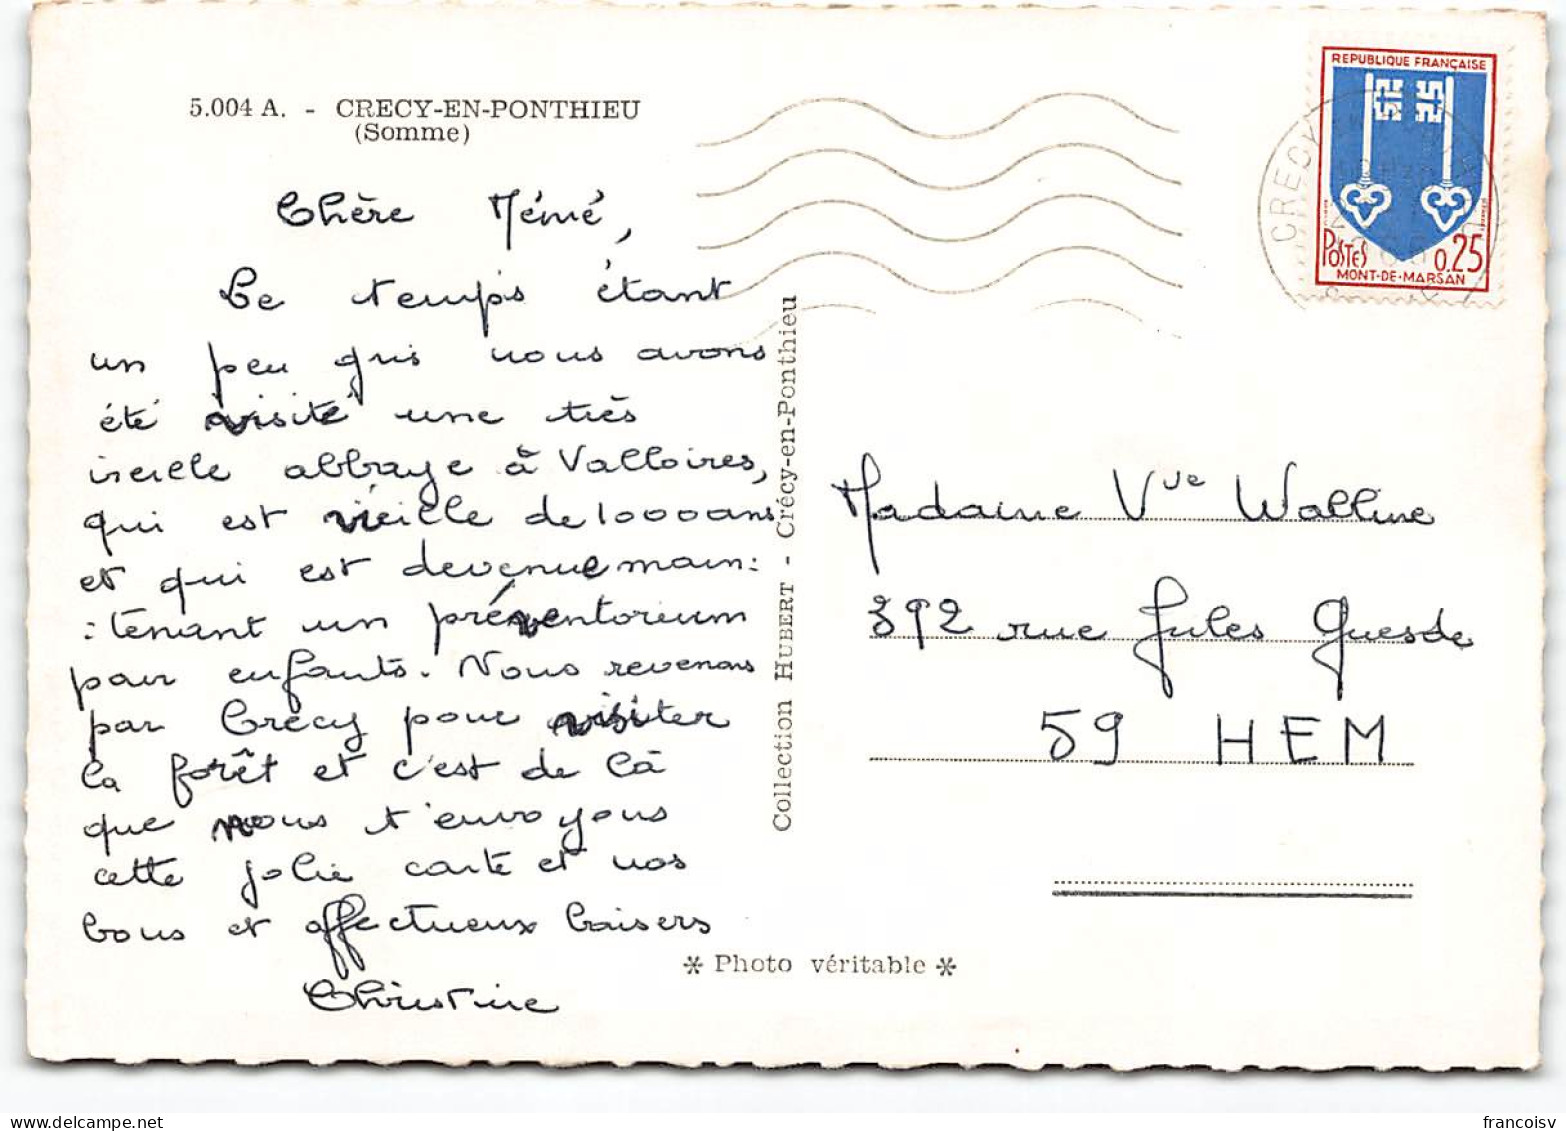 5.004 A. - CRECY-EN-PONTHIEU
(Somme)
Chère Mémé,
Le temps étant
un peu gris nous avons
été visité une très
vieille abbaye à Valloires,
qui est vieille de 1000 ans
et qui est devenue main:
:tenant un préventorium
pour enfants. Nous revenons
par Crécy pour visiter
la forêt et c'est de là
que nous t'envoyons
cette jolie carte et nos
bons et affectueux baisers
Christine
Collection HUBERT - Crécy-en-Ponthieu
* Photo véritable *
REPUBLIQUE FRANÇAISE
POSTES 0.25
MONT-DE-MARSAN
CRECY
Madame Vve Walline
392 rue Jules Guesde
59 HEM
francoisv